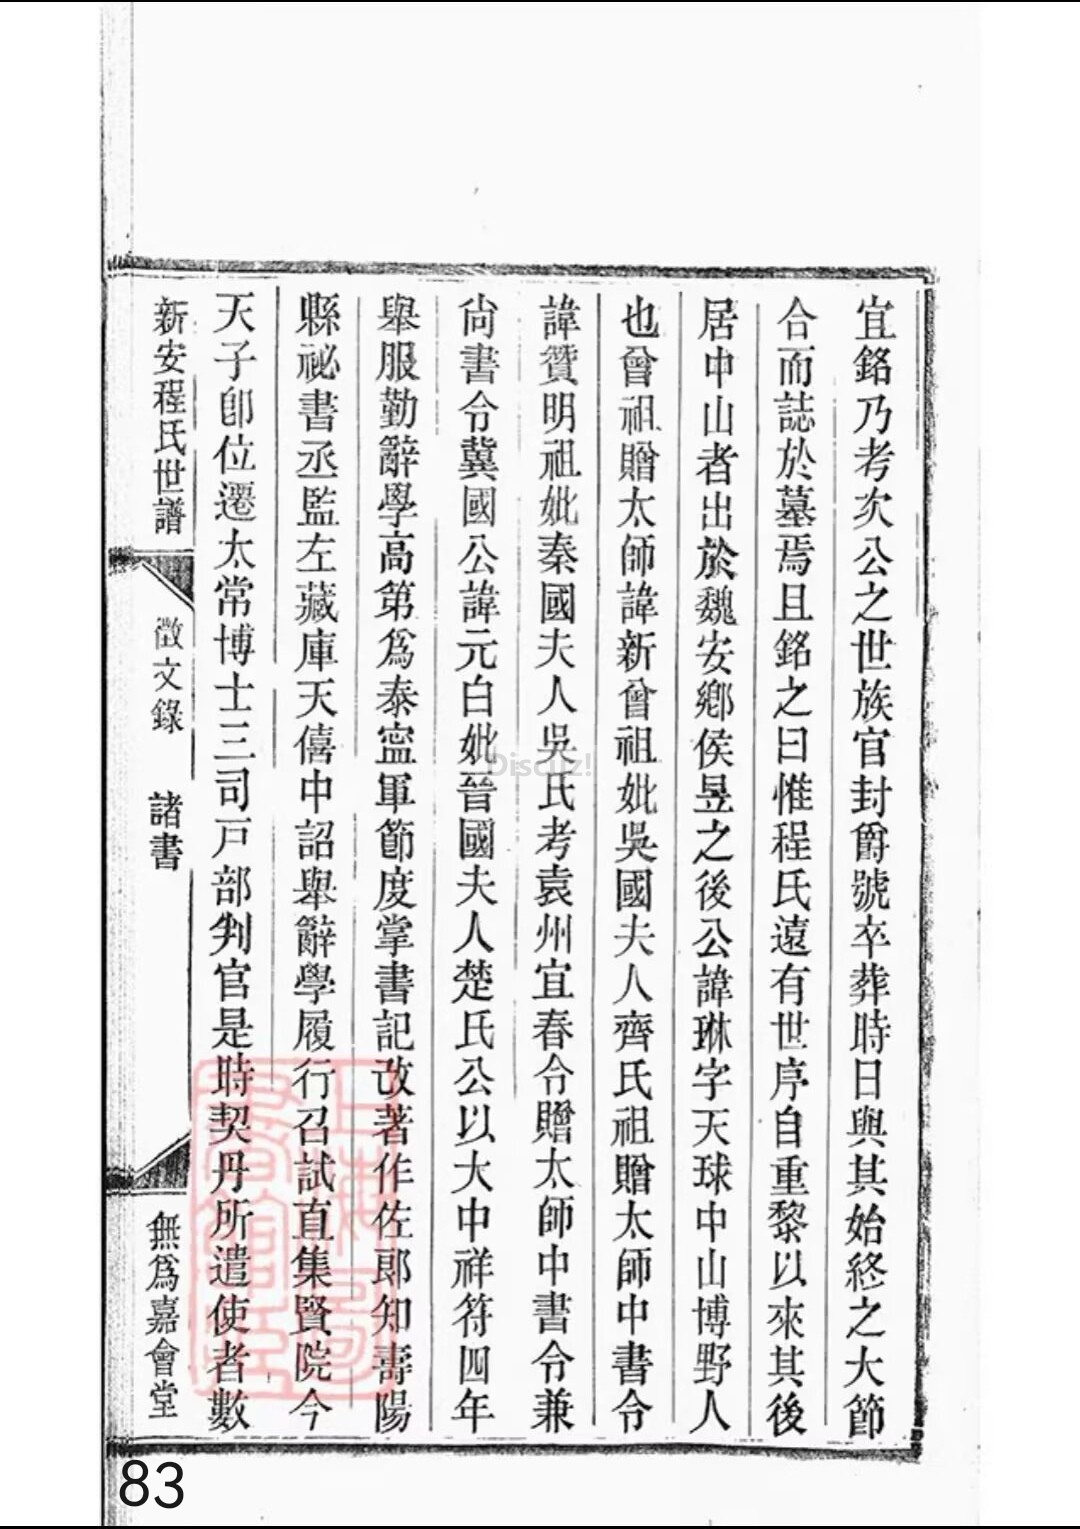 宜銘乃考次公之世族官封爵號卒葬時日與其始終之大節
合而誌於墓焉且銘之曰惟程氏遠有世序自重黎以來其後
居中山者出於魏安鄉侯昱之後公諱琳字天球中山博野人
也曾祖贈太師諱新曾祖妣吳國夫人齊氏祖贈太師中書令
諱贊明祖妣秦國夫人吳氏考袁州宜春令贈太師中書令兼
尚書令冀國公諱元白妣晉國夫人楚氏公以大中祥符四年
舉服勤辭學高第為泰寍軍節度掌書記改著作佐郎知壽陽
縣祕書丞監左藏庫天僖中詔舉辭學履行召試直集賢院今
天子卽位遷太常博士三司戶部判官是時契丹所遣使者數
新安程氏世譜
徵文錄
諸書
無為嘉會堂
上海圖書館藏
Discuz!
83